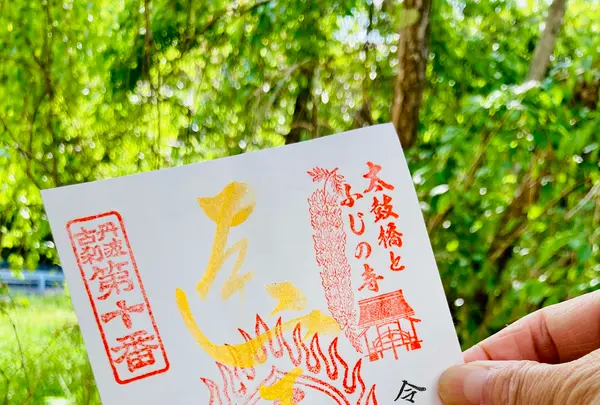 太鼓橋と
ふじの寺
丹波
古刹
第十番
令